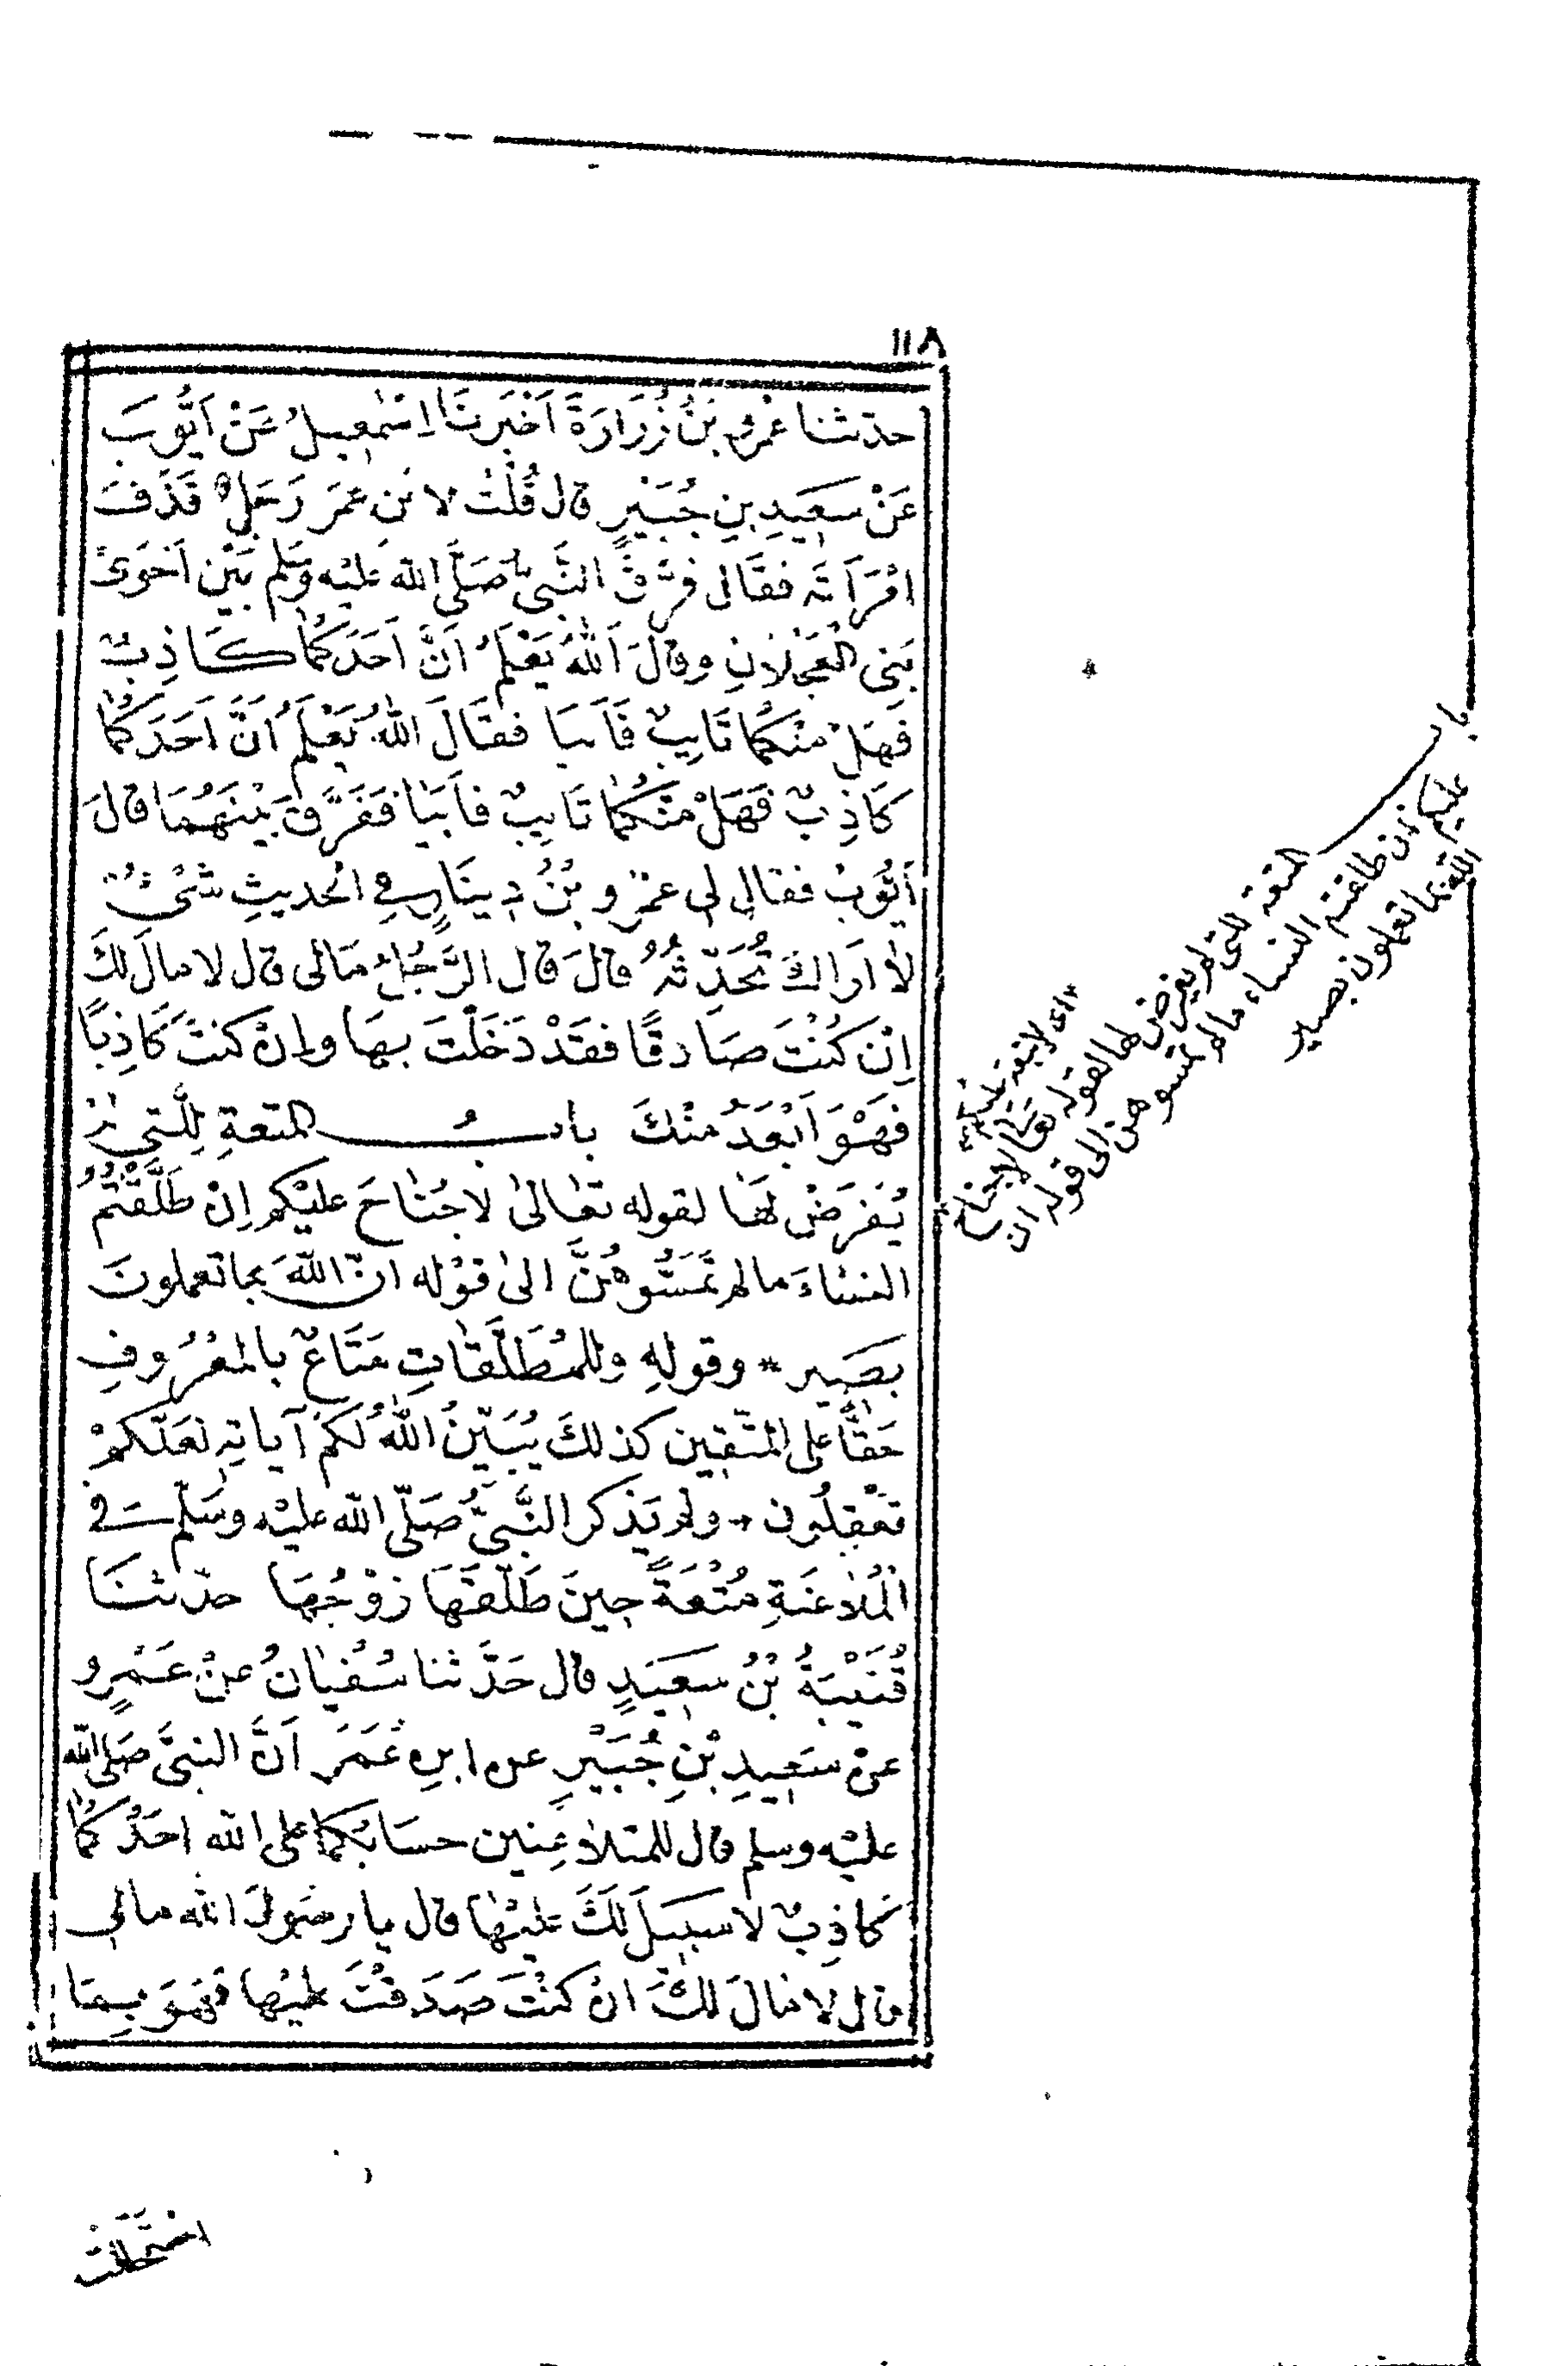 ١١٨
حدثنا عَمْرُو بْنُ زُرَارَةَ اَخْبَرَنَا اِسْمٰعِيلُ عَنْ اَيُّوبَ
عَنْ سَعِيدِ بنِ جُبَيْرٍ قال قُلْتُ لابْنِ عمَرَ رَجَلٌ قَذَفَ
امْرَاَتَه فقَال فرَّقَ النَّبىُّ صَلَّى الله عَليْه وَسَلم بَيْن اَخَوَىْ
بَنِى العَجْلانِ وقالَ اَللّٰهُ يَعْلَمُ اَنَّ اَحَدَكُمَا كَاذِبٌ
فَهَلْ مِنْكُمَا تَايِبٌ فَاَبَيَا فقَالَ اللّٰهُ يَعْلَمُ اَنَّ اَحَدَكُمَا
كَاذِبٌ فَهَلْ مِنْكُمَا تَايِبٌ فاَبَيَا فَفَرَّقَ بَيْنَهُمَا قالَ
اَيُّوبُ فقال لى عَمْرُو بْنُ دِينَارٍ فِى الحديثِ شَىْءٌ
لاٰ اَرَاكَ تُحَدِّثُهُ قالَ قال الرَّجُلُ مَالى قال لا مالَ لكَ
اِنْ كُنْتَ صَادقًا فقَدْ دَخَلْتَ بهَا وان كنتَ كَاذِبًا
فَهْوَ اَبْعَدُ مِنْكَ بابُ المتعةِ لِلَّتى لَمْ
يُفرَضْ لهَا لقوله تعَالىٰ لاجُنَاحَ عليْكم اِنْ طَلَّقْتُمُ
النسَاءَ مالم تَمَسُّوهُنَّ الىٰ قوْله انّ اللّٰهَ بما تعملونَ
بصَير * وقولهِ وللمُطَلَّقَاتِ مَتَاعٌ بالمَعْرُوفِ
حَقًّا على المتّقين كذلكَ يُبَيّنُ اللّٰهُ لَكمْ آياتهِ لعَلّكمْ
تعْقِلُون ولم يَذكر النَّبىُّ صَلّى الله عليْه وسَلّم فى
المُلاعَنَةِ مُتْعَةً حِينَ طَلّقَهَا زَوْجُهَا حدّثنَا
قُتَيْبَةُ بْنُ سَعِيَدٍ قال حَدَّثنا سُفيَانُ عنْ عَمْرٍو
عنْ سَعيدِ بْنِ جُبَيْرٍ عن ابنِ عُمَرَ اَنَّ النبىَّ صَلى الله
عليْه وسلم قال للمتلاعِنين حسَابُكمَا على الله احَدُكمَا
كاذِبٌ لاسبَيلَ لَكَ عَليْهَا قال يارسُولَ الله مالى
قال لا مَالَ لكَ انْ كنْتَ صَدَقْتَ عليْها فَهوَ بِمَا
اسْتَحْلَلْتَ
باب المتعة للتى لم يفرض لها لقوله تعالى لاجناح
عليكم ان طلقتم النساء مالم تمسوهن الى قوله ان
الله بما تعملون بصير